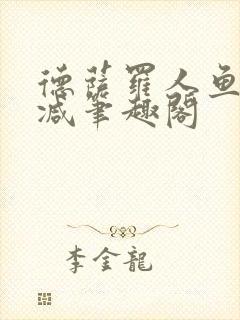 德薩羅人魚
减筆趣閣
李金龍